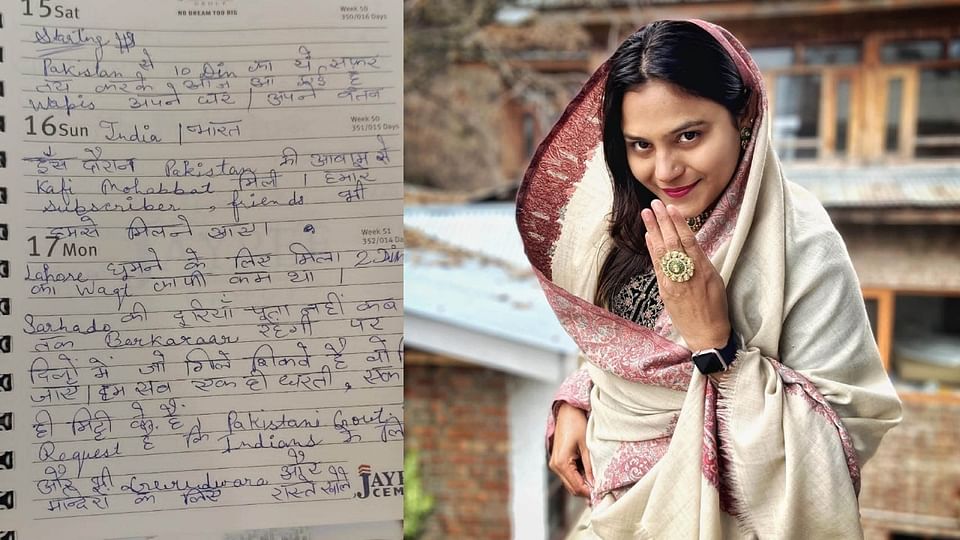 15 Sat
NO DREAM TOO BIG
Week 50
350/016 Days
Starting
Pakistan से 10 Din का ये सफर
तय करके आज आ गई है
Wapis अपने घर | अपने वतन
16 Sun India | भारत
Week 50
351/015 Days
इस दौरान Pakistan की आवाम से
Kafi Mohabbat मिली | हमारे
subscriber, friends भी
हमसे मिलने आए।
17 Mon
Week 51
352/014 Da
Lahore घुमने के लिए मिला 2 Din
का Waqt काफी कम था |
Sarhado की दूरियाँ पता नहीं कब
तक Barkaraar रहेगी पर
दिलों में जो गिले शिकवे है वो
जाए। हम सब एक ही धरती, एक
ही मिट्टी के है।
Pakistani Govt
Request है कि Indians के लि
और भी Gurudwara और
मन्दिरों के लिए रास्ते खोले
JAYP
CEM